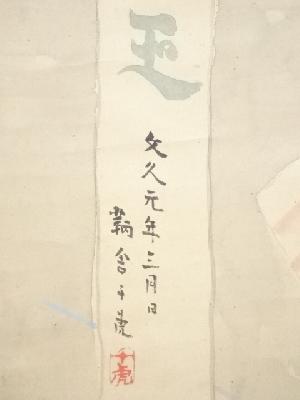 文久元年三月日
鞆舎千虎
千虎